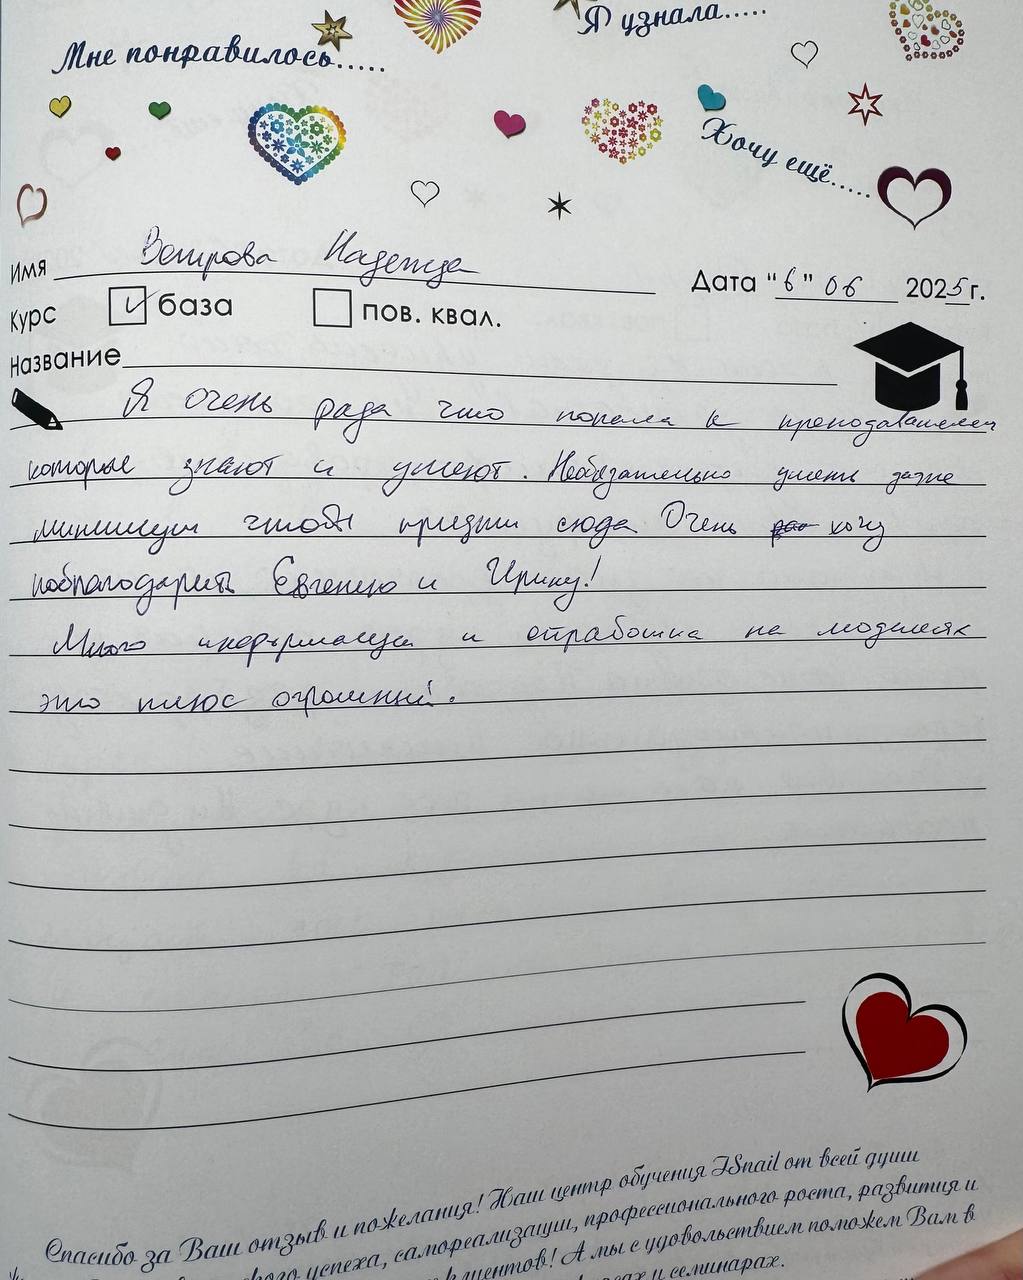 Я узнала.....
Мне понравилось.....
Хочу ещё.....
Имя Ветрова Надежда
Дата "6" 06 2025 г.
Курс база пов. квал.
Название
Я очень рада что попала к преподавателям
которые знают и умеют. Необязательно уметь даже
минимум чтобы придти сюда Очень хочу
поблагодарить Евгению и Ирину!
Много информации и отработка на моделях
это плюс огромный.
Спасибо за Ваш отзыв и пожелания! Наш центр обучения ISnail от всей души
успеха, самореализации, профессионального роста, развития и
клиентов! А мы с удовольствием поможем Вам в
и семинарах.